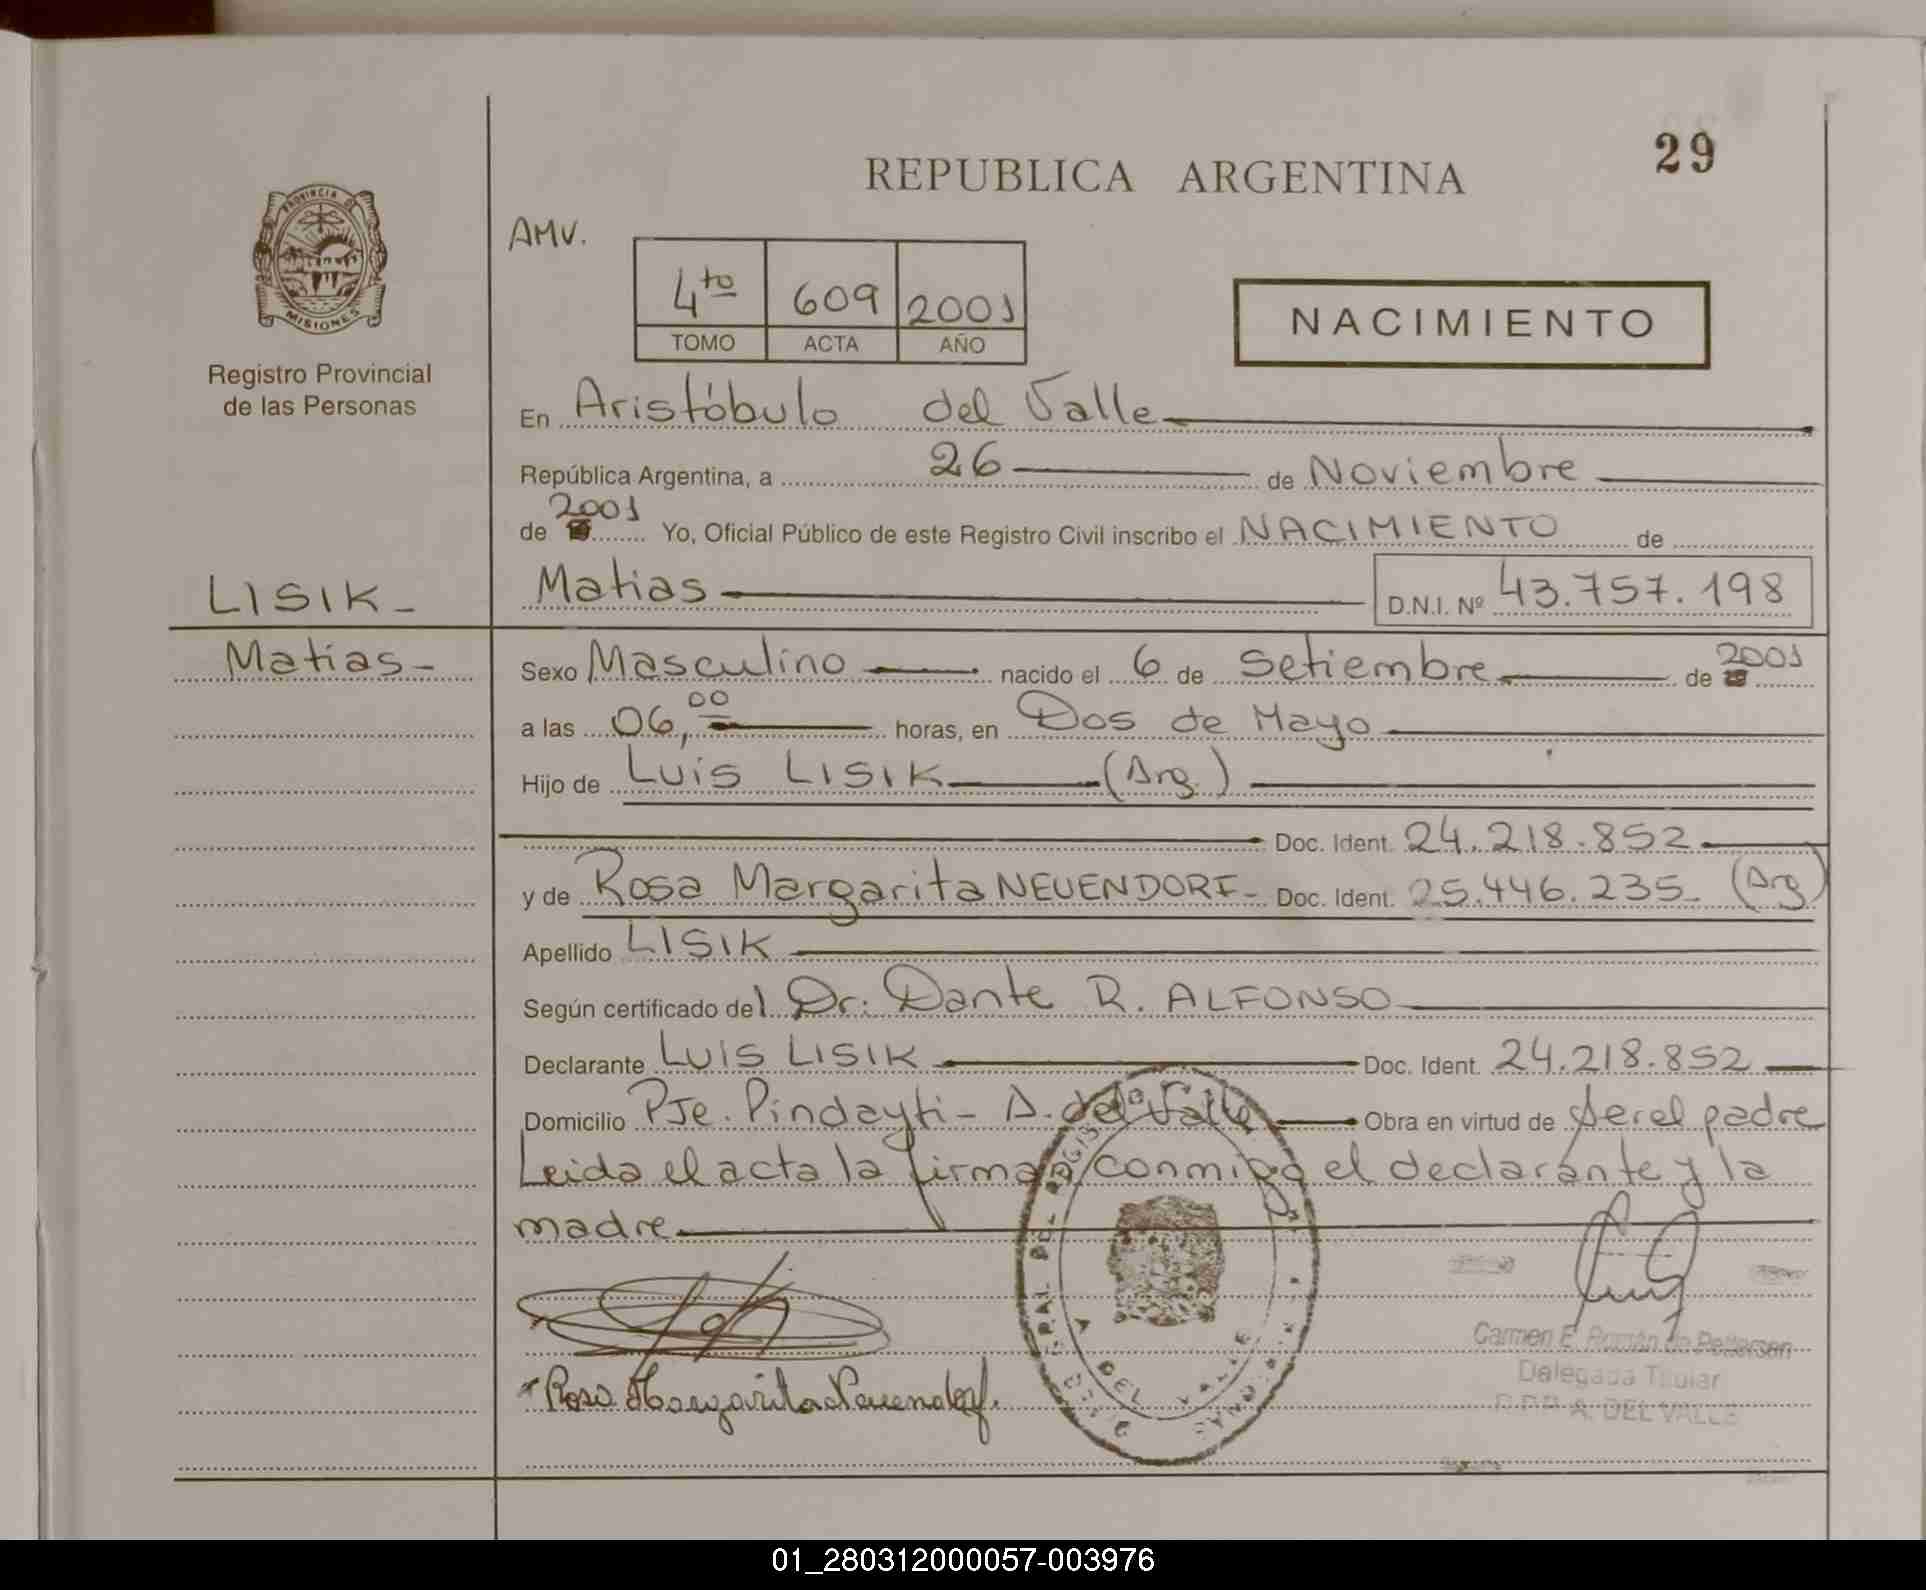 29
REPUBLICA ARGENTINA
PROVINCIA DE
MISIONES
Registro Provincial
de las Personas
AMV.
4to 609 2001
TOMO ACTA AÑO
NACIMIENTO
En Aristóbulo del Valle
República Argentina, a 26 de Noviembre
de 2001 Yo, Oficial Público de este Registro Civil inscribo el NACIMIENTO de
LISIK - Matias D.N.I. Nº 43.757.198
Matias - Sexo Masculino nacido el 6 de Setiembre de 2001
a las 06,00 horas, en Dos de Mayo
Hijo de Luis LISIK (Arg.)
Doc. Ident. 24.218.852
y de Rosa Margarita NEUENDORF - Doc. Ident. 25.446.235 - (Arg)
Apellido LISIK
Según certificado del Dr. Dante R. ALFONSO
Declarante LUIS LISIK Doc. Ident. 24.218.852
Domicilio PJe. Pindayti - A. del Valle Obra en virtud de ser el padre
Leida el acta la firman conmigo el declarante y la
madre
Rosa Margarita Neuendorf.
A. DEL VALLE
Carmen E. Román de Pettersen
Delegada Titular
A. DEL VALLE
01_280312000057-003976